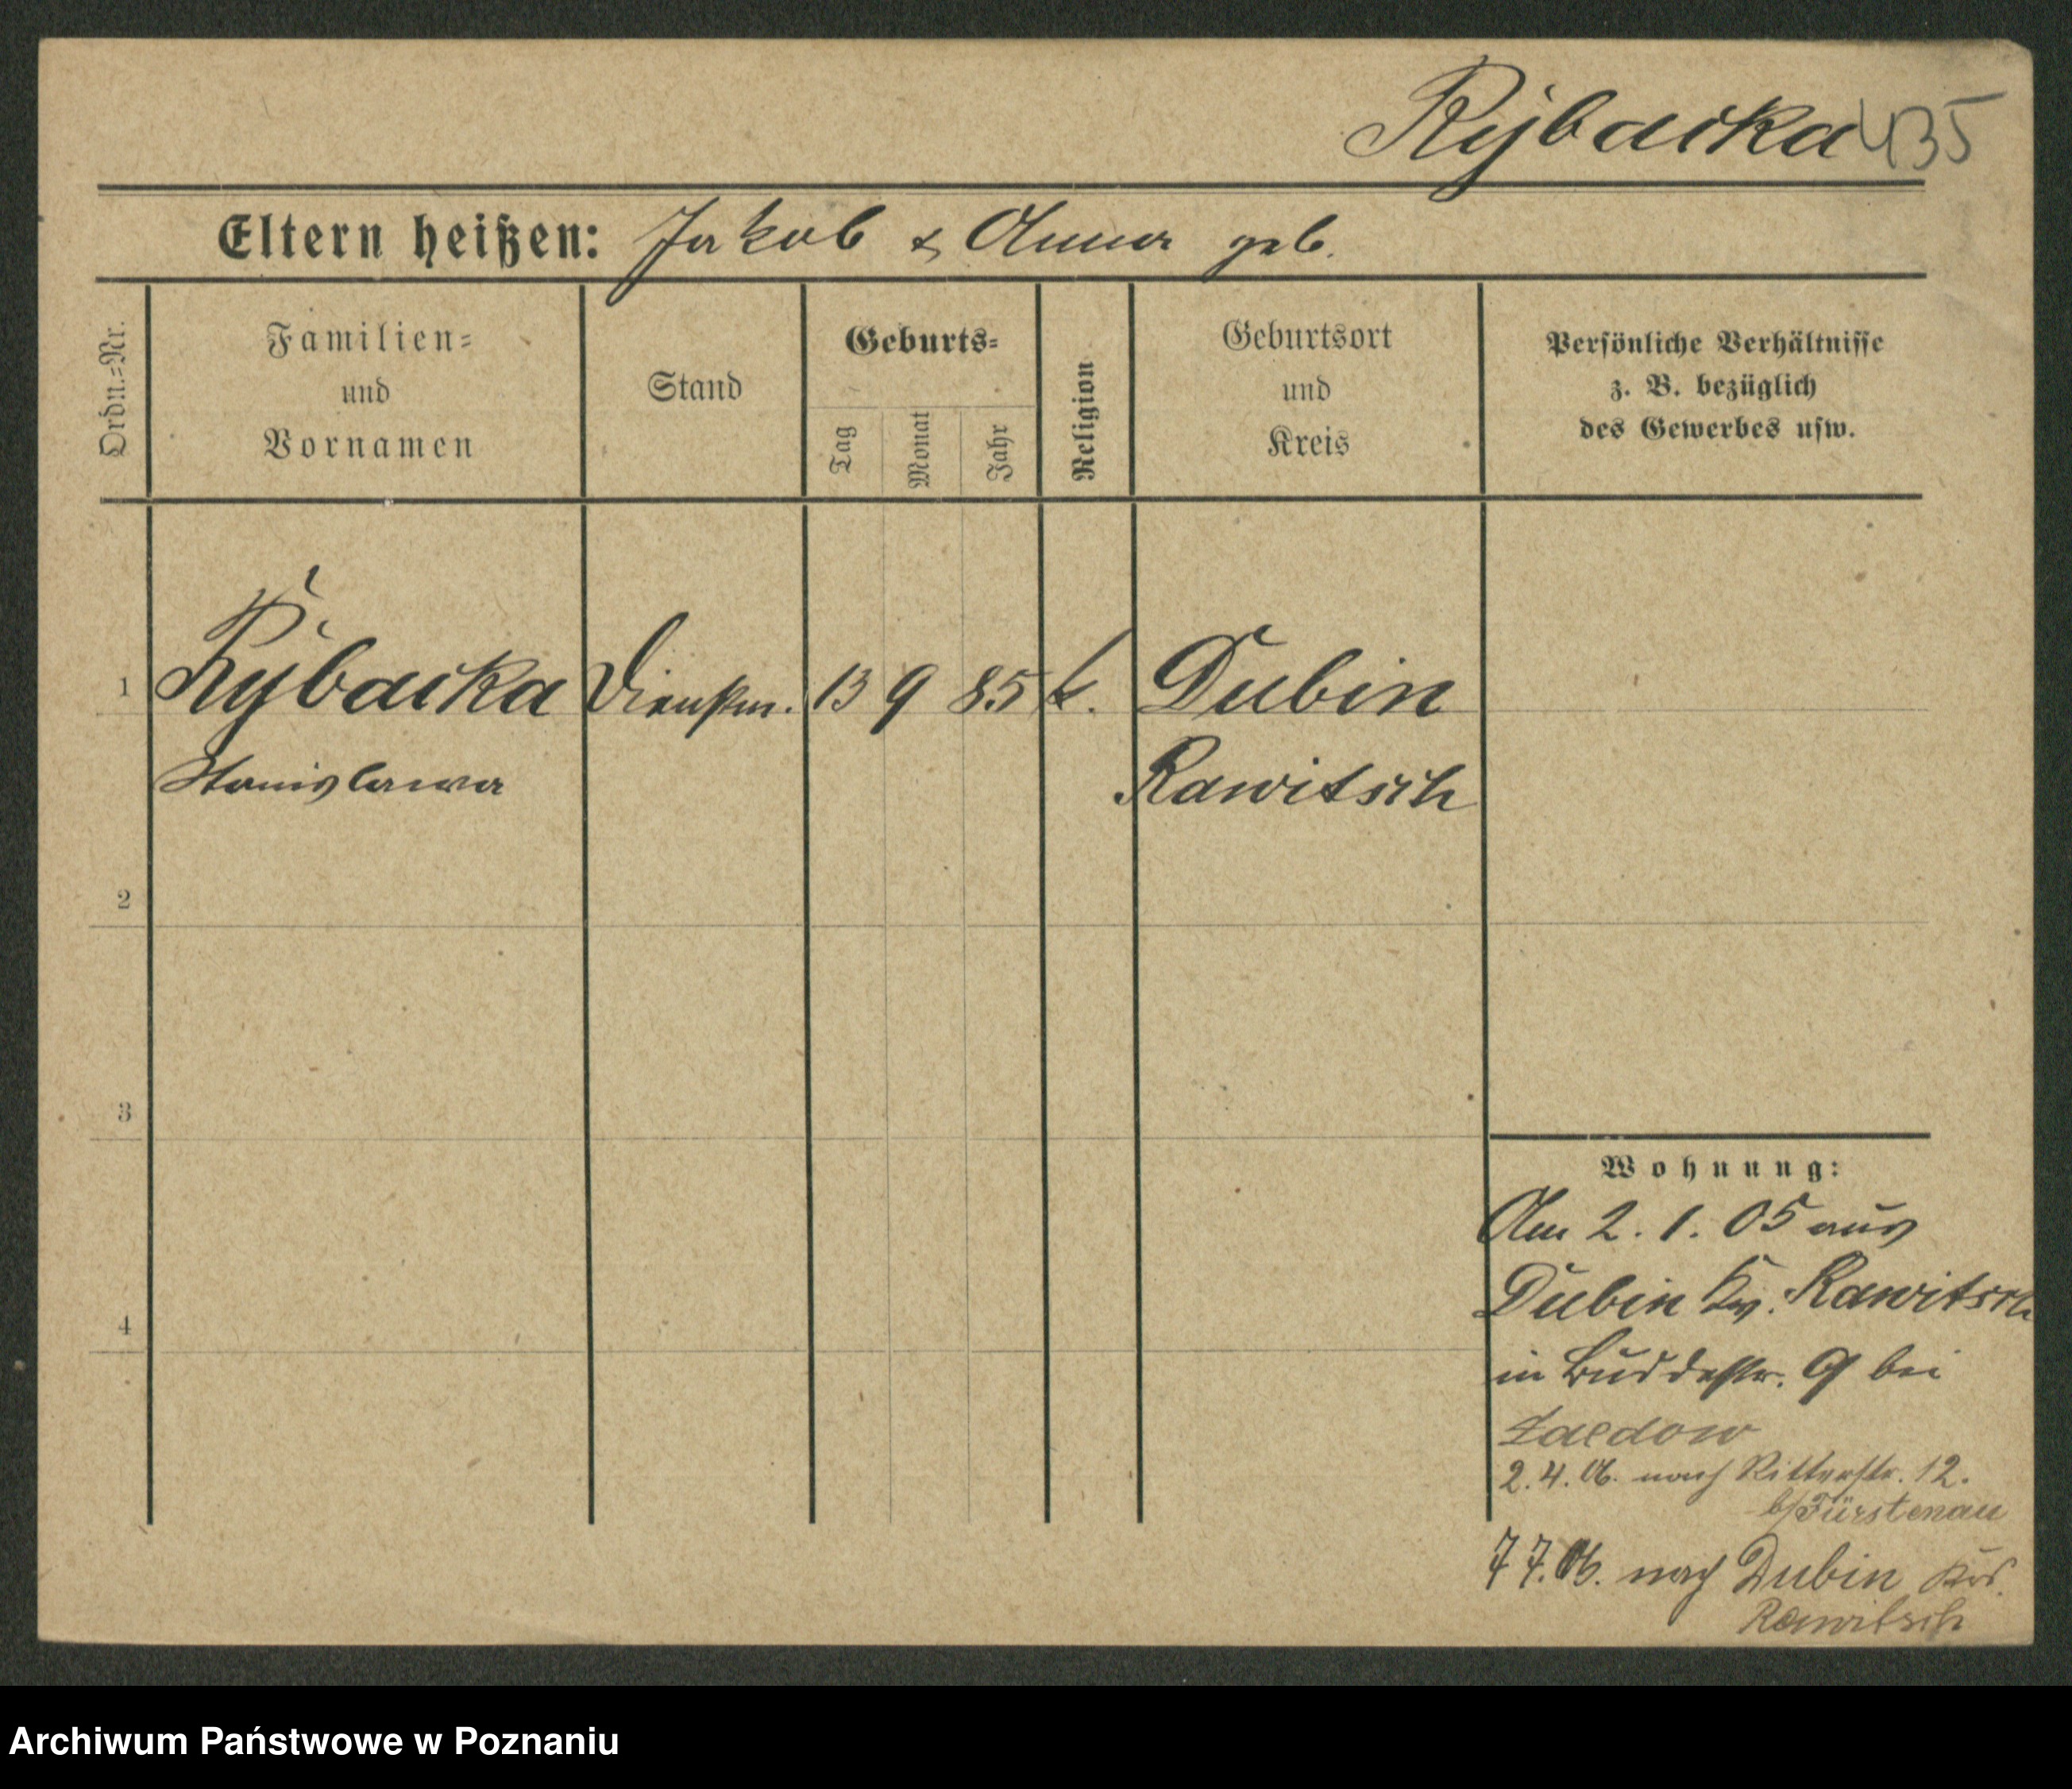 Rybacka 435
Eltern heißen: Jakob & Anna geb.
Ordn.=Nr.
Familien=
und
Vornamen
Stand
Geburts=
Tag
Monat
Jahr
Religion
Geburtsort
und
Kreis
Persönliche Verhältnisse
z. B. bezüglich
des Gewerbes usw.
1 Rybacka Dienstm. 13 9 85 k. Dubin
Stanislawa Rawitsch
2
3
4
Wohnung:
Am 2. 1. 05 aus
Dubin Kr. Rawitsch
in Buddestr. 9 bei
2. 4. 06. nach Ritterstr. 12.
b/Fürstenau
7 7. 06. nach Dubin Krs.
Rawitsch
Archiwum Państwowe w Poznaniu